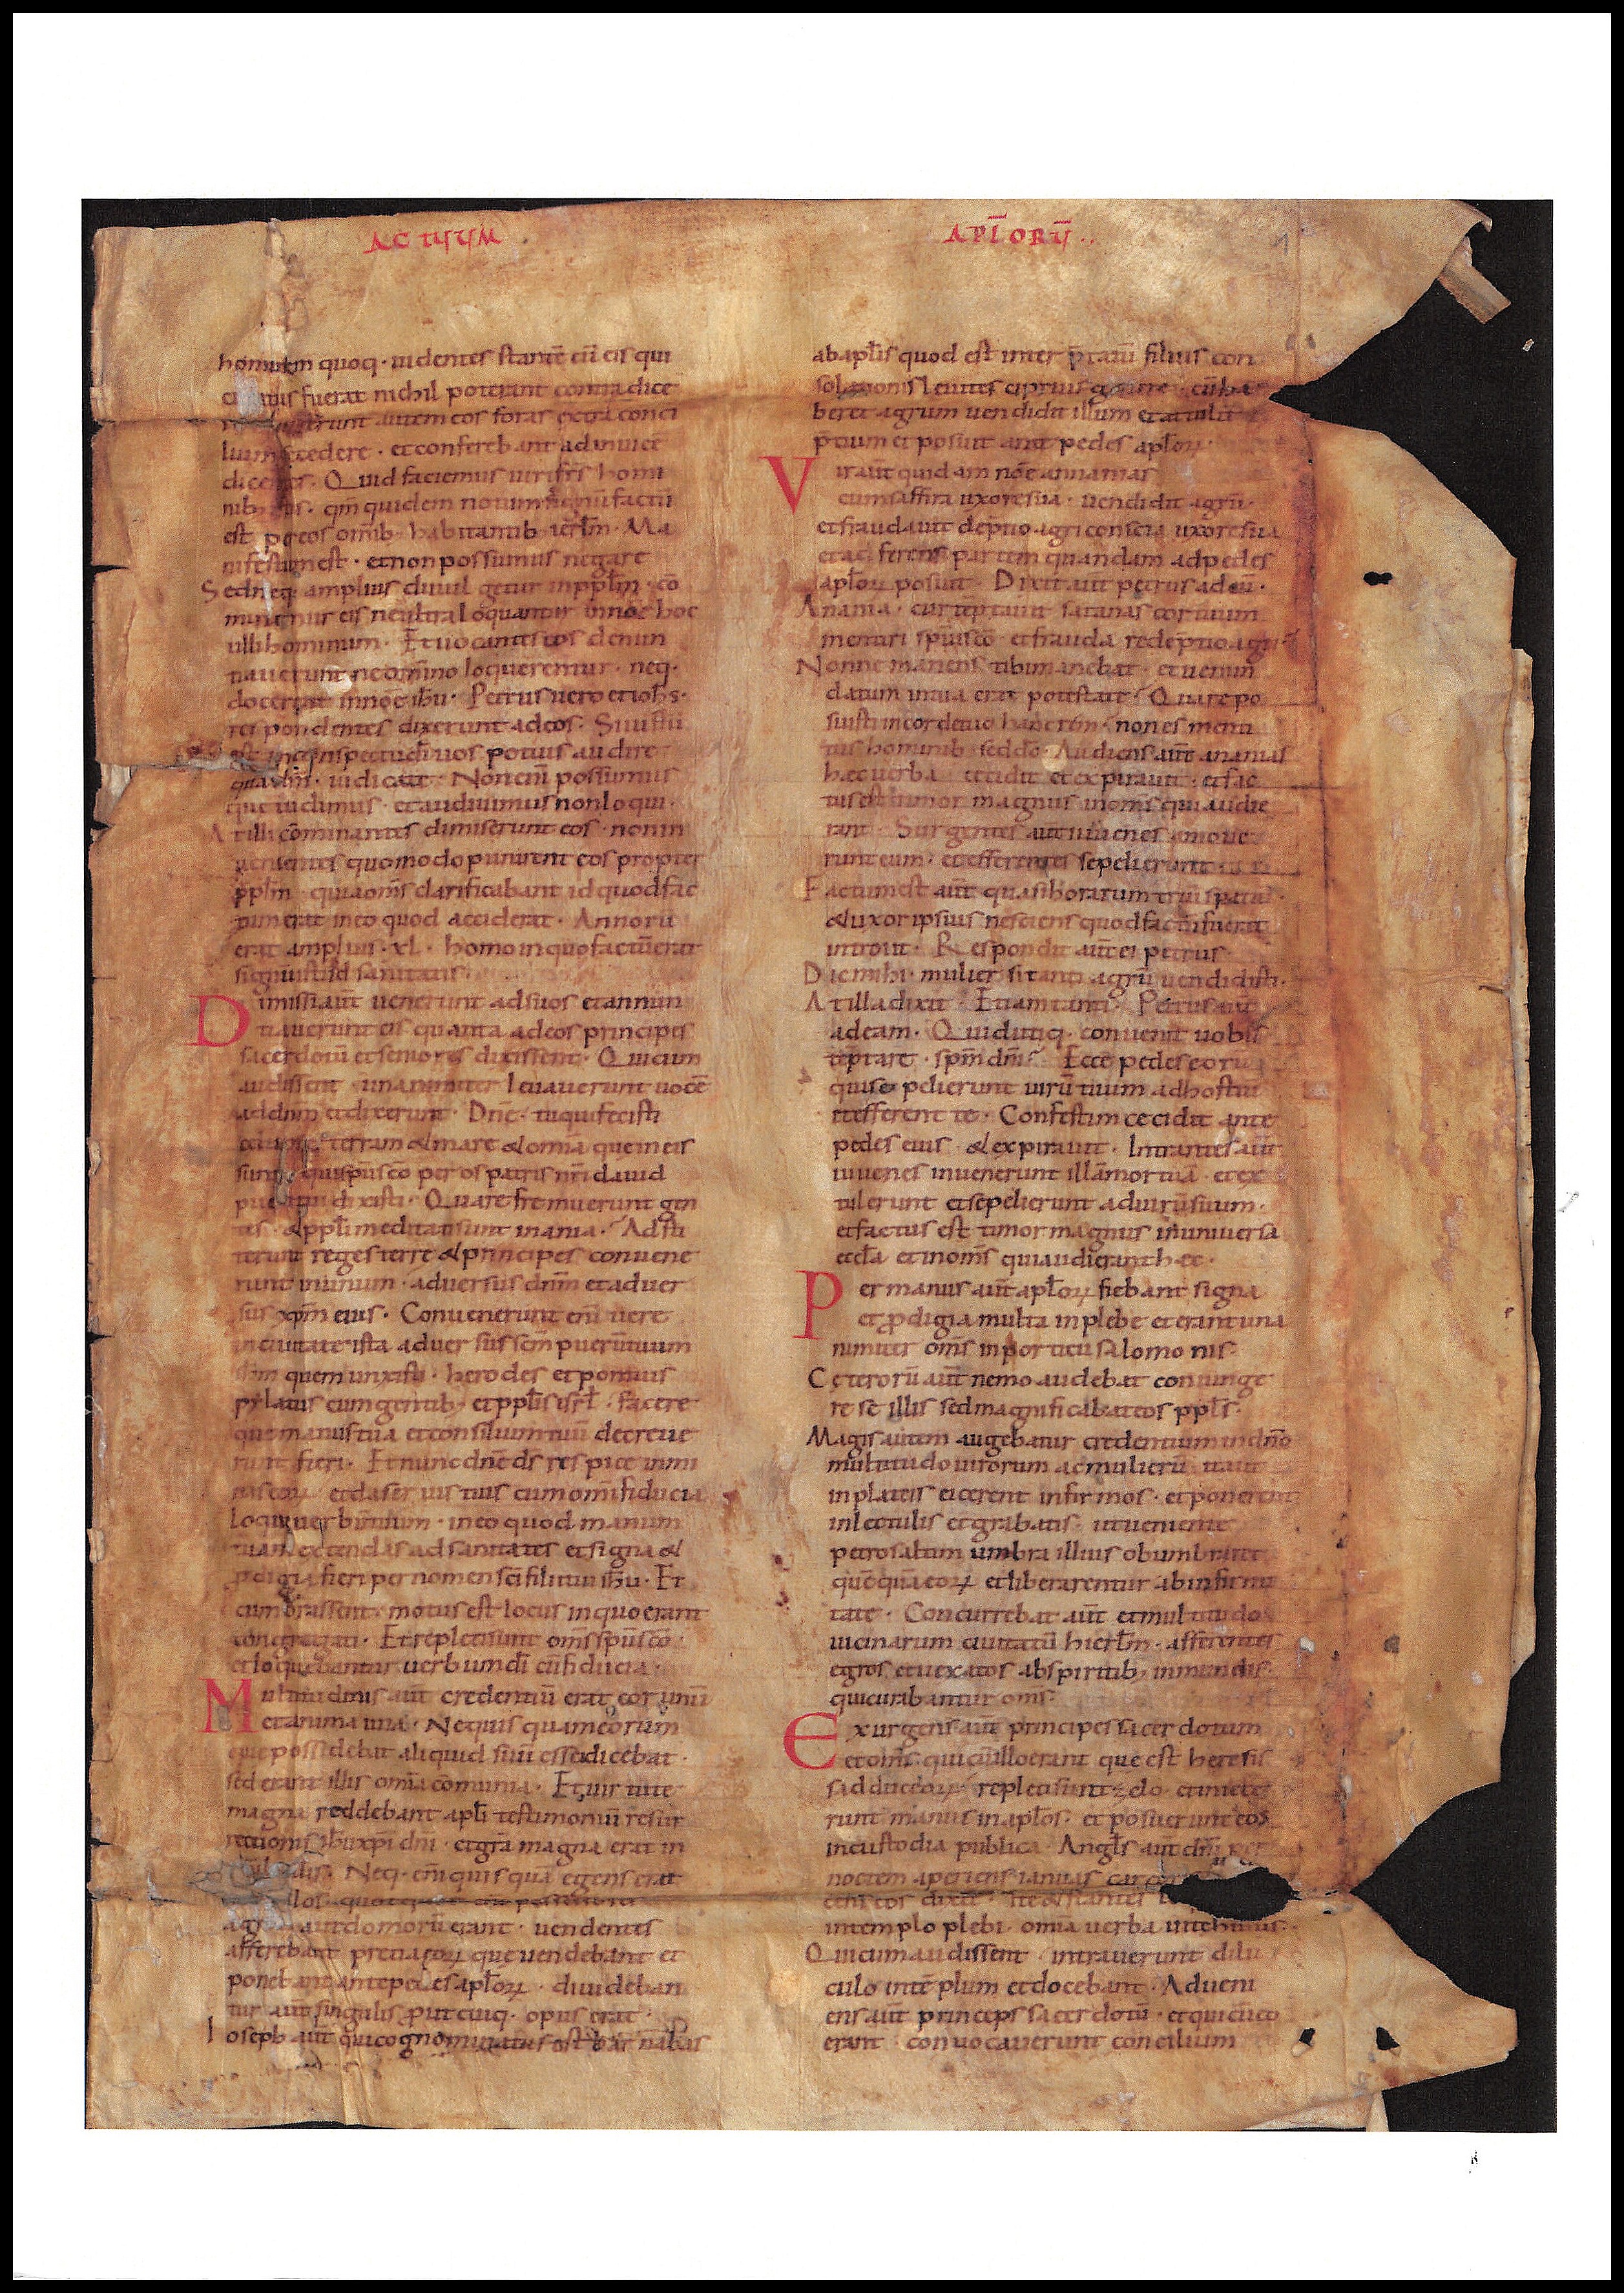 ACTUUM
APL̄ORŪ..
hominem quoq· uidentes stantē cū eis qui
fuerat nichil poterant contradice
autem eos foras extra conci
lium secedere · et conferebant adinuicē
dicentes. Quid faciemus uiri fr̄s homi
nib; qm̄ quidem notum signū factū
est p eos omib; habitantib; ierl̄m. Ma
nifestum est · et non possumus negare
Sed neq; amplius diuulgetur inppl̄m · cō
minemur eis ne ultra loquantur in noē hoc
ulli hominum. Et uocantes eos denun
tiauerunt ne om̄ino loquerentur · neq·
docerent in noē ih̄u. Petrus uero et ioh̄s·
respondentes dixerunt adeos. Si iustū
est in conspectu dī uos potius audire
quā dm̄· iudicate. Non enī possumus
que uidimus · et audiuimus non loqui.
At illi cōminantes dimiserunt eos · non in
uenientes quomodo punirent eos propter
ppl̄m · quia om̄s clarificabant id quod fac
tum erat in eo quod acciderat. Annorū
erat amplius ·xl· homo in quo factū erat
signū istud sanitatis.
Dimissi aut̄ uenerunt ad suos et annun
tiauerunt eis quanta adeos principes
sacerdotū et seniores dixissent. Qui cum
audissent unanimiter leuauerunt uocē
ad dnm̄ et dixerunt. Dnē· tu qui fecisti
terram & mare & omia que in eis
sunt qui sp̄u scō per os patris nr̄i dauid
pueri tui dixisti. Quare fremuerunt gen
tes · & ppl̄i meditati sunt inania. Adsti
terunt reges terre & principes conuene
runt inunum · aduersus dnm̄ et aduer
sus xpm̄ eius. Conuenerunt enī uere
in ciuitate ista aduersus scm̄ puerū tuum
ih̄m quem unxisti · herodes et pontius
pylatus cum gentib; et ppl̄is isrl̄. Facere
que manus tua et consilium tuū decreue
runt fieri. Et nunc dnē ds̄ respice inmi
nas eoꝝ et da seruis tuis cum om̄i fiducia
loqui uerbū tuum · in eo quod manum
tuam extendas ad sanitates et signa &
pdigia fieri per nomen scī filii tui ih̄u. Et
cum orassent · motus est locus in quo erant
congregati. Et repleti sunt om̄s sp̄u scō.
et loquebantur uerbum dī cū fiducia.
Multitudinis aut̄ credentiū erat cor unū
et anima una. Nec quisquam eorum
que possidebat aliquid suū esse dicebat·
sed erant illis om̄ia comunia. Et uirtute
magna reddebant apl̄i testimoniū resur
rectionis ih̄u xpī dnī · et gr̄a magna erat in
Neq· enī quisquā egens erat
illos
agrorum aut domorū erant · uendentes
afferebant pretia eoꝝ que uendebant et
ponebant ante pedes apl̄oꝝ · diuideban
tur aut̄ singulis prout cuiq· opus erat.
Ioseph aut̄ qui cognominatus est barnabas
ab apl̄is quod est inter p̄tatū filius con
solationis leuites ciprius genere · cū ha
beret agrum uendidit illum et attulit
p̄tium et posuit ante pedes apl̄oꝝ.
Vir aut̄ quidam noē annanias
cum saffira uxore sua · uendidit agrū·
et fraudauit dep̄tio agri conscia uxore sua
et afferens partem quandam ad pedes
apl̄oꝝ posuit. Dixit aut̄ petrus ad eū.
Anania · cur tēptauit satanas cor tuum
mentiri sp̄ui scō et fraudare dep̄tio agri
Nonne manens tibi manebat · et uenun
datum in tua erat potestate. Quare po
suisti in corde tuo hanc rem · non es menti
tus hominib; sed dō. Audiens aut̄ ananias
hec uerba cecidit et expirauit · et fac
tus est timor magnus in om̄s qui audie
rant. Surgentes aut̄ iuuenes amoue
runt eum · et efferentes sepelierunt
Factum est aut̄ quasi horarum triū spatiū·
& uxor ipsius nesciens quod factū fuerat
introiit. Respondit aut̄ ei petrus
Dic mihi mulier si tanti agrū uendidisti.
At illa dixit. Etiam tanti. Petrus aut̄
adeam. Quid utiq· conuenit uobis
tēptare spm̄ dnī. Ecce pedes eorū
qui sepelierunt uirū tuum adhostiū
et efferent te. Confestim cecidit ante
pedes eius & expirauit. Intrantes aut̄
iuuenes inuenerunt illā mortuā · et ex
tulerunt et sepelierunt ad uirū suum.
et factus est timor magnus in uniuersa
eccl̄a et in om̄s qui audierant hec.
Per manus aut̄ apl̄oꝝ fiebant signa
et prodigia multa in plebe et erant una
nimiter om̄s in porticu salomonis.
Ceterorū aut̄ nemo audebat coniunge
re se illis sed magnificabat eos ppl̄s.
Magis autem augebatur credentium in dnō
multitudo uirorum ac mulierū ita ut
in plateis eicerent infirmos · et ponerent
in lectulis et grabatis · ut ueniente
petro saltim umbra illius obumbraret
quēquā eoꝝ et liberarentur ab infirmi
tate. Concurrebat aut̄ et multitudo
uicinarum ciuitatū hierl̄m · afferentes
egros et uexatos ab spiritib; inmundis·
qui curabantur om̄s.
Exurgens aut̄ princeps sacerdotum
et om̄s qui cū illo erant que est heresis
sadduceoꝝ repleti sunt zelo · et iniece
runt manus in apl̄os · et posuerunt eos
in custodia publica. Angl̄s aut̄ dnī per
noctem aperiens ianuas
cens eos dixit. Ite et stantes
in templo plebi · om̄ia uerba uite huius.
Qui cum audissent intrauerunt dilu
culo in tēplum et docebant. Adueni
ens aut̄ princeps sacerdotū · et qui cū eo
erant conuocauerunt concilium